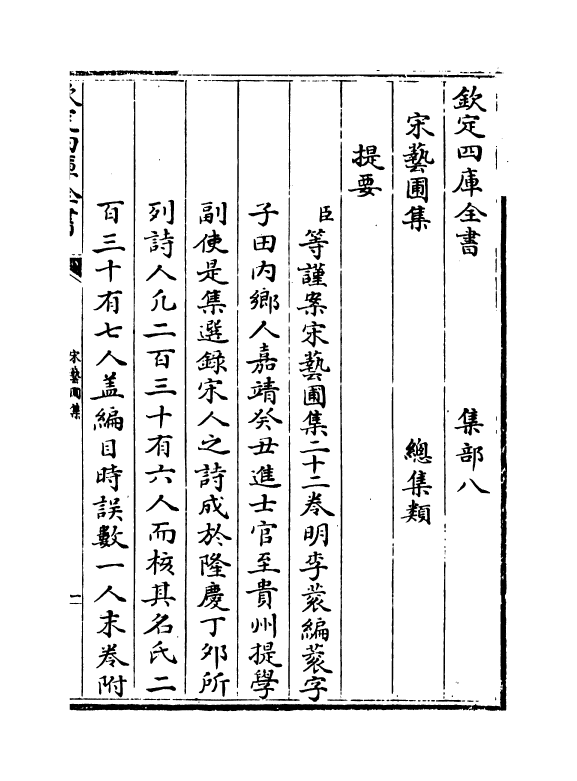 欽定四庫全書　集部八
宋藝圃集　總集類
提要
臣等謹案宋藝圃集二十二卷明李蓘編蓘字
子田内鄉人嘉靖癸丑進士官至貴州提學
副使是集選録宋人之詩成於隆慶丁夘所
列詩人凡二百三十有六人而核其名氏二
百三十有七人盖編目時誤數一人末卷附
欽定四庫全書　宋藝圃集　一